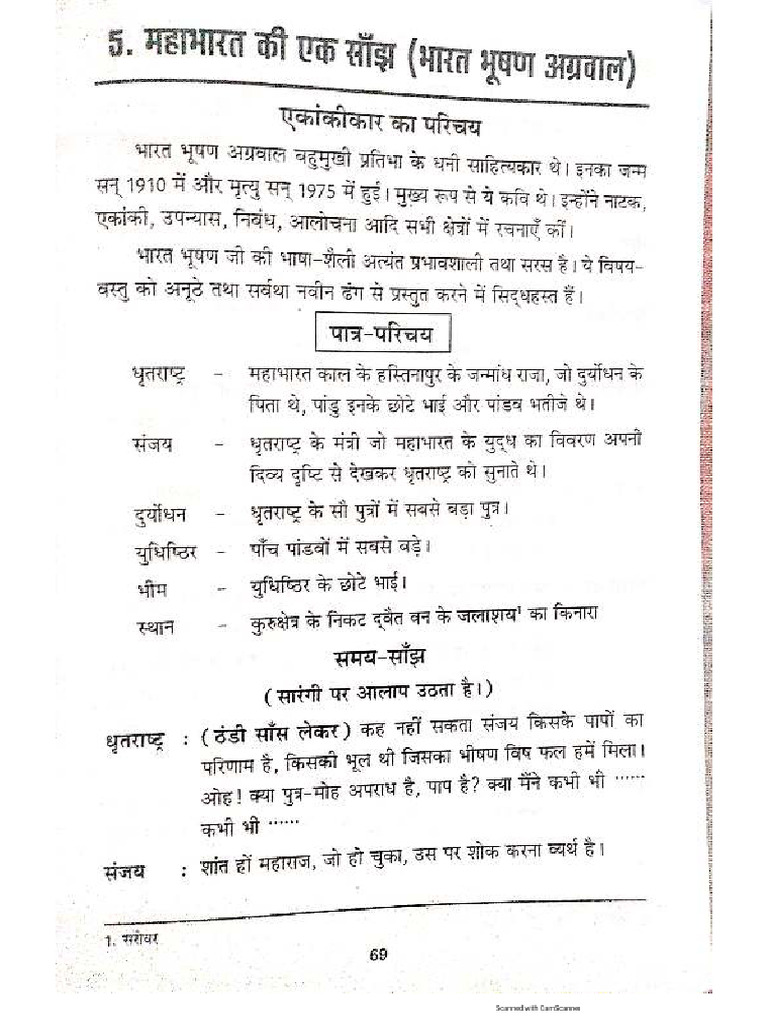 5. महाभारत की एक साँझ (भारत भूषण अग्रवाल)
एकांकीकार का परिचय
भारत भूषण अग्रवाल बहुमुखी प्रतिभा के धनी साहित्यकार थे। इनका जन्म
सन् 1910 में और मृत्यु सन् 1975 में हुई। मुख्य रूप से ये कवि थे। इन्होंने नाटक,
एकांकी, उपन्यास, निबंध, आलोचना आदि सभी क्षेत्रों में रचनाएँ कीं।
भारत भूषण जी की भाषा-शैली अत्यंत प्रभावशाली तथा सरस है। ये विषय-
वस्तु को अनूठे तथा सर्वथा नवीन ढंग से प्रस्तुत करने में सिद्धहस्त हैं।
पात्र-परिचय
धृतराष्ट्र - महाभारत काल के हस्तिनापुर के जन्मांध राजा, जो दुर्योधन के
पिता थे, पांडु इनके छोटे भाई और पांडव भतीजे थे।
संजय - धृतराष्ट्र के मंत्री जो महाभारत के युद्ध का विवरण अपनी
दिव्य दृष्टि से देखकर धृतराष्ट्र को सुनाते थे।
दुर्योधन - धृतराष्ट्र के सौ पुत्रों में सबसे बड़ा पुत्र।
युधिष्ठिर - पाँच पांडवों में सबसे बड़े।
भीम - युधिष्ठिर के छोटे भाई।
स्थान - कुरुक्षेत्र के निकट द्वैत वन के जलाशय¹ का किनारा
समय-साँझ
(सारंगी पर आलाप उठता है।)
धृतराष्ट्र : (ठंडी साँस लेकर) कह नहीं सकता संजय किसके पापों का
परिणाम है, किसकी भूल थी जिसका भीषण विष फल हमें मिला।
ओह! क्या पुत्र-मोह अपराध है, पाप है? क्या मैंने कभी भी ......
कभी भी ......
संजय : शांत हों महाराज, जो हो चुका, उस पर शोक करना व्यर्थ है।
1. सरोवर
69
Scanned with CamScanner